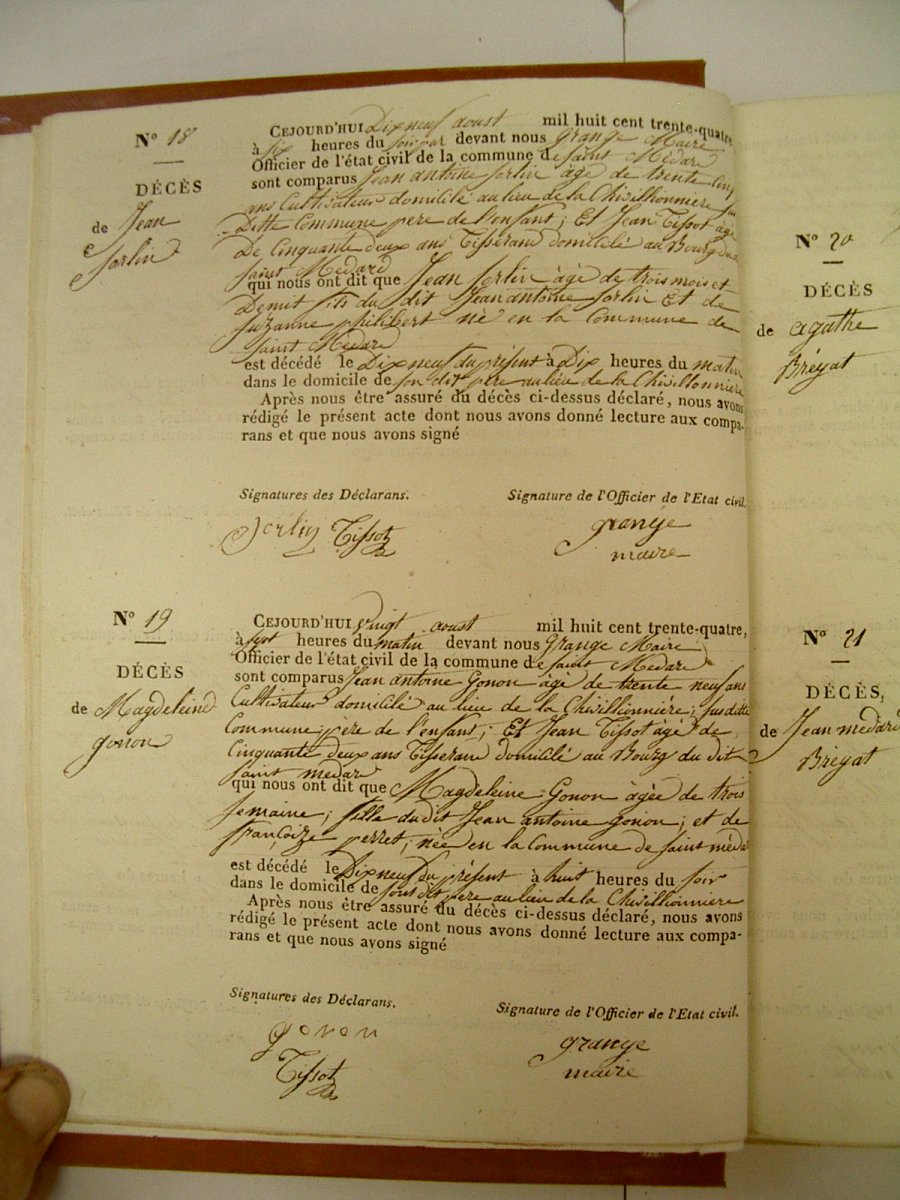 N° 18
DÉCÈS
de Jean
Jorlin
CEJOURD'HUI Dixneuf aoust mil huit cent trente-quatre,
à six heures du soir par devant nous Grange Maire
Officier de l'état civil de la commune de Saint Médard
sont comparus Jean antoine Jorlin âgé de trente cinq
ans Cultivateur domicilié au lieu de la Chivillionniere
Ditte Commune pere de l'enfant; Et Jean Tissot âgé
De Cinquante deux ans Tisserand domicilié au Bourg du
Saint Médard
qui nous ont dit que Jean Jorlin âgé de trois mois et
Demit fils du dit Jean antoine Jorlin Et de
Suzanne philibert né en la Commune de
Saint Médard
est décédé le Dixneuf du présent à Dix heures du matin
dans le domicile de son dit père au lieu de la Chivillonniere
Après nous être assuré du décès ci-dessus déclaré, nous avons
rédigé le présent acte dont nous avons donné lecture aux compa-
rans et que nous avons signé
Signatures des Déclarans. Signature de l'Officier de l'Etat civil.
Jorlin Tissot grange
maire
N° 19
DÉCÈS
de Magdeleine
gonon
CEJOURD'HUI vingt aoust mil huit cent trente-quatre,
à sept heures du matin devant nous Grange Maire
Officier de l'état civil de la commune de Saint Médard
sont comparus Jean antoine Gonon âgé de trente neuf ans
Cultivateur domicilié au lieu de la Chivillionniere; susditte
Commune; père de l'enfant; Et Jean Tissot âgé de
Cinquante deux ans Tisserand domicilié au Bourg du dit
Saint médard
qui nous ont dit que Magdeleine Gonon âgée de trois
semaine; fille du dit Jean antoine gonon; et de
françoize perret; née en la Commune de saint méda
est décédé le Dixneuf du présent à huit heures du soir
dans le domicile de sous dit père au lieu de la Chivillionniere
Après nous être assuré du décès ci-dessus déclaré, nous avons
rédigé le présent acte dont nous avons donné lecture aux compa-
rans et que nous avons signé
Signatures des Déclarans. Signature de l'Officier de l'Etat civil.
gonon grange
Tissot maire
N° 20
DÉCÈS
de agathe
Bréyat
N° 21
DÉCÈS,
de Jean médard
Bréyat